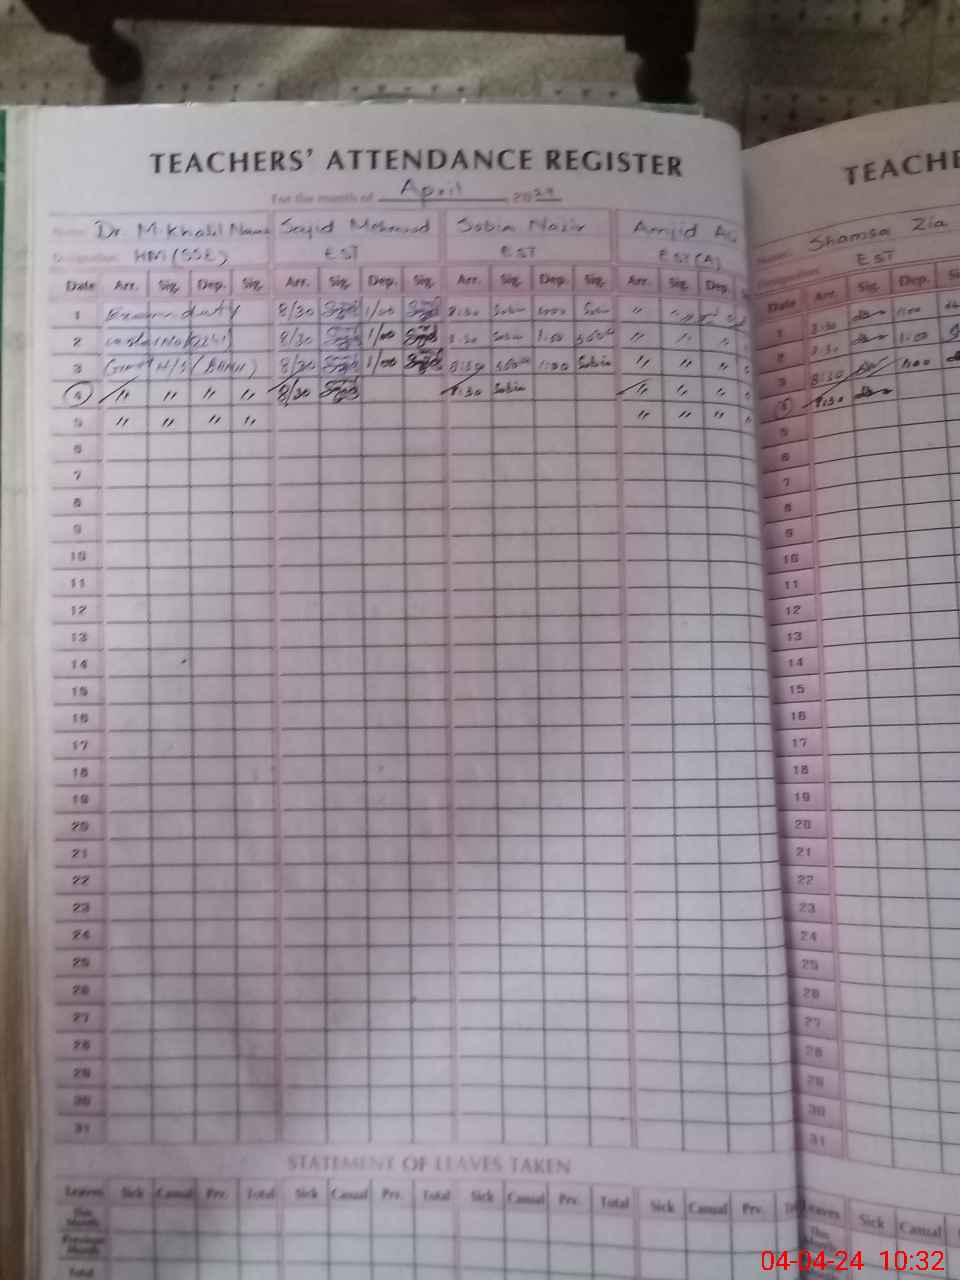 TEACHERS' ATTENDANCE REGISTER
For the month of April 2024
Dr. M. Khalil Sajid Mehmood Sabia Nazir Amjid
Designation: HM (SSE) EST EST EST (A)
Date Arr. Sig. Dep. Sig. Arr. Sig. Dep. Sig. Arr. Sig. Dep. Sig. Arr. Sig. Dep.
1 Exam duty 8/30 1/00 8:30 Sabia 1:00 Sabia "
2 8/30 1/00 8:30 Sabia 1:00 " " "
3 8/30 1/00 8:30 1:00 Sabia " " "
4 " " " " 8/30 8:30 Sabia " " "
5 " " " " " " "
6
7
8
9
10
11
12
13
14
15
16
17
18
19
20
21
22
23
24
25
26
27
28
29
30
31
STATEMENT OF LEAVES TAKEN
Leaves Sick Casual Prv. Total Sick Casual Prv. Total Sick Casual Prv. Total Sick Casual Prv.
This Month
Previous Month
Total
TEACHE
Name: Shamsa Zia
Designation: EST
Date Arr. Sig. Dep.
1 8:30 1:00
2 8:30 1:00
3 8:30 1:00
4 8:30
5
6
7
8
9
10
11
12
13
14
15
16
17
18
19
20
21
22
23
24
25
26
27
28
29
30
31
Leaves Sick Casual
This
04-04-24 10:32